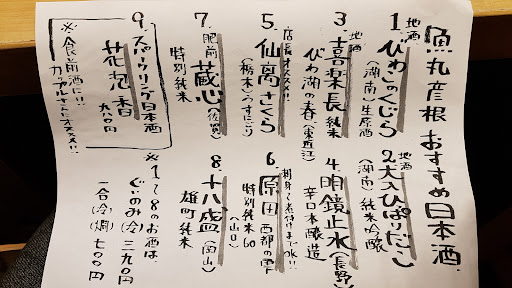 魚丸彦根おすすめ日本酒
地酒
1.びわこのくじら
(湖南)生原酒
地酒
2.大入ひょうたん
(湖西)純米吟醸
地酒
3.喜楽長 純米
びわ湖の春(東近江)
4.明鏡止水(長野)
辛口本醸造
店長オススメ!!
5.仙禽さくら
(栃木)うすにごり
刺身で煮付けまでOK!!
6.原田 西都の雫
特別純米60
(山口)
7.肥前蔵心(佐賀)
特別純米
8.十八盛(岡山)
雄町純米
9.スパークリング日本酒
花泡香
九八〇円
※食前酒に!!
カップルさんにオススメ!!
※1〜8のお酒は、
ぐいのみ(冷)三九〇円
一合(冷)(燗)七〇〇円